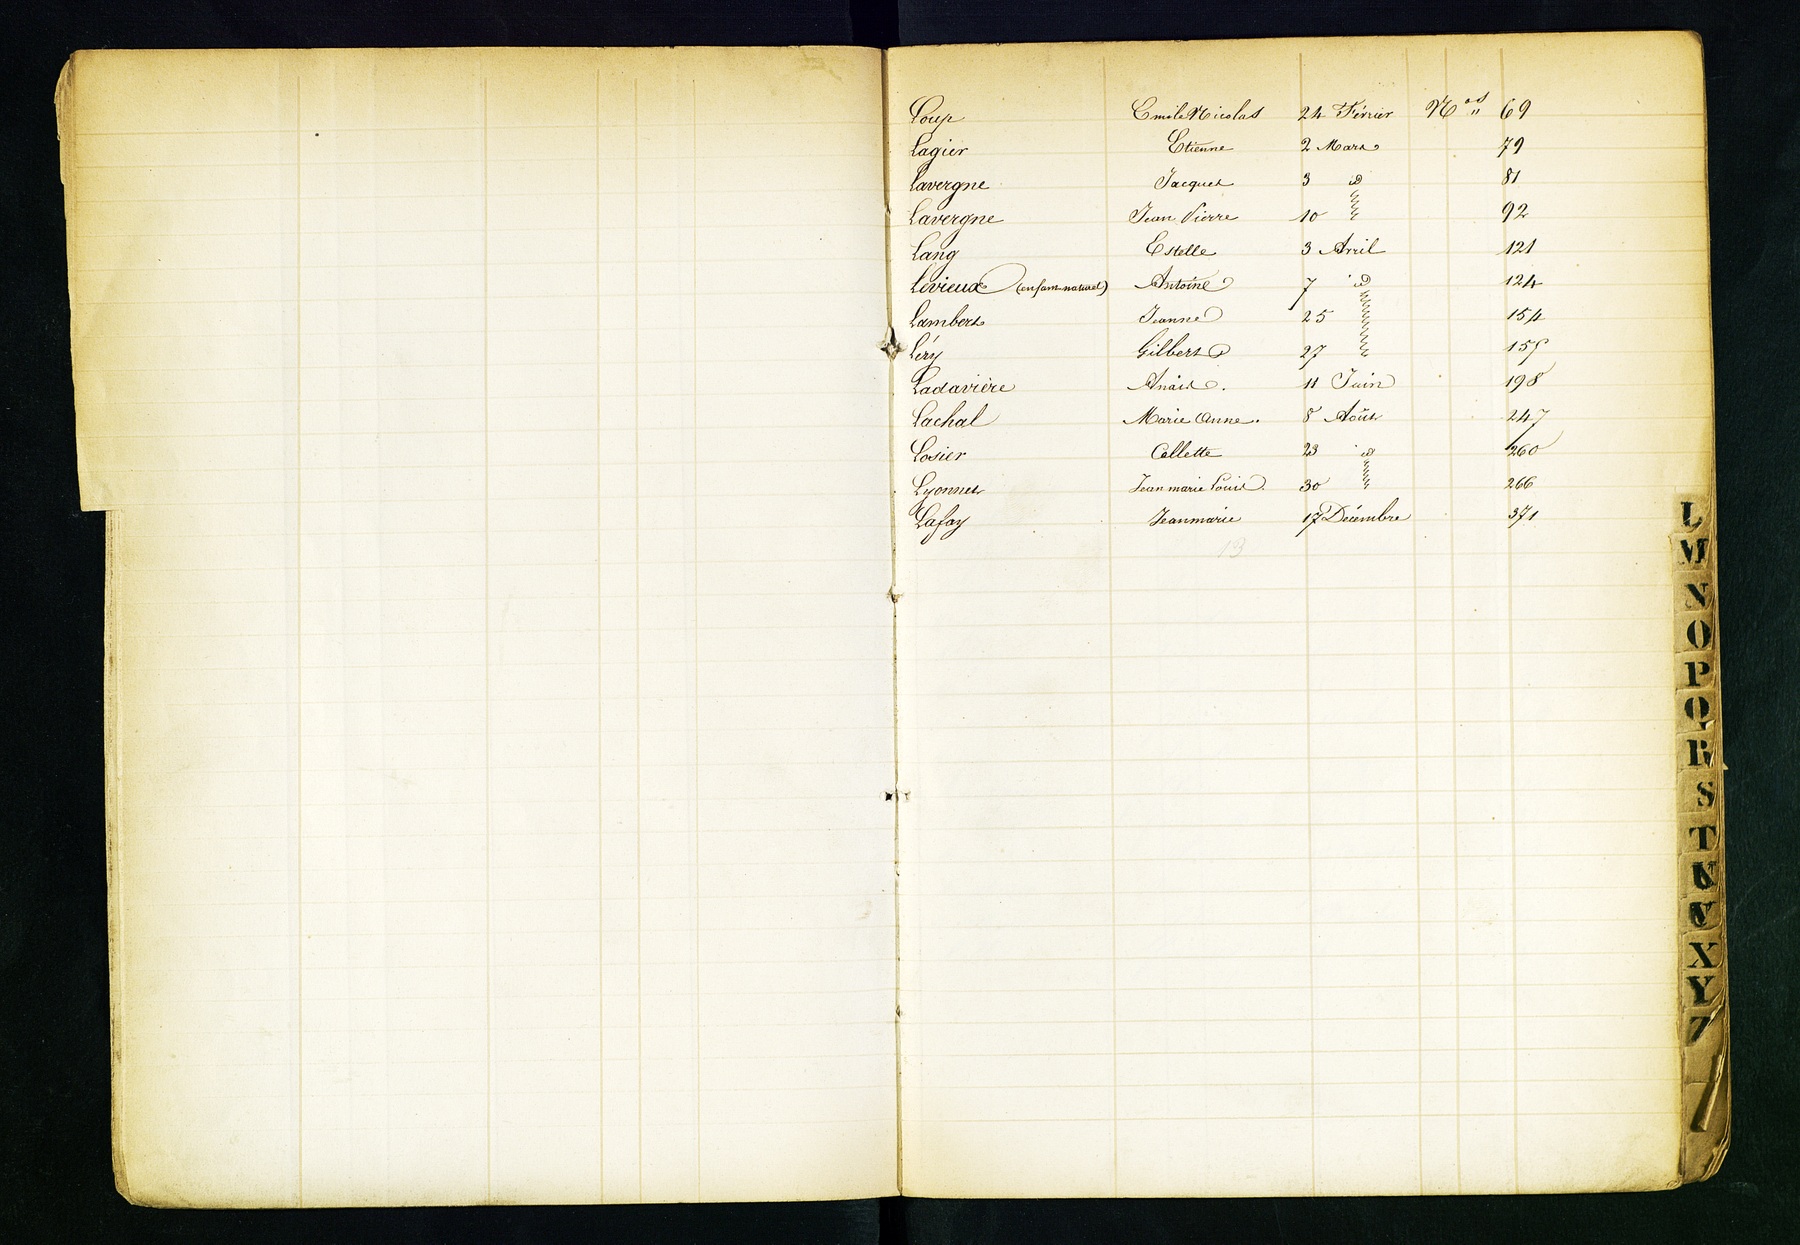 Loup Emile Nicolas 24 Février Nos " 69
Lagier Etienne 2 Mars 79
Lavergne Jacques 3 id 81
Lavergne Jean Pierre 10 92
Lang Estelle 3 Avril 121
Livieux (enfant naturel) Antoine 7 id 124
Lambert Jeanne 25 154
Léry Gilbert 27 155
Ladavière Anaïs. 11 Juin 198
Lachal Marie Anne. 8 Août 247
Losier Collette 23 id 260
Lyonnet Jean marie Louis. 30 266
Lafay Jeanmarie 17 Décembre 371
13
L
M
N
O
P
Q
R
S
T
U
V
X
Y
Z